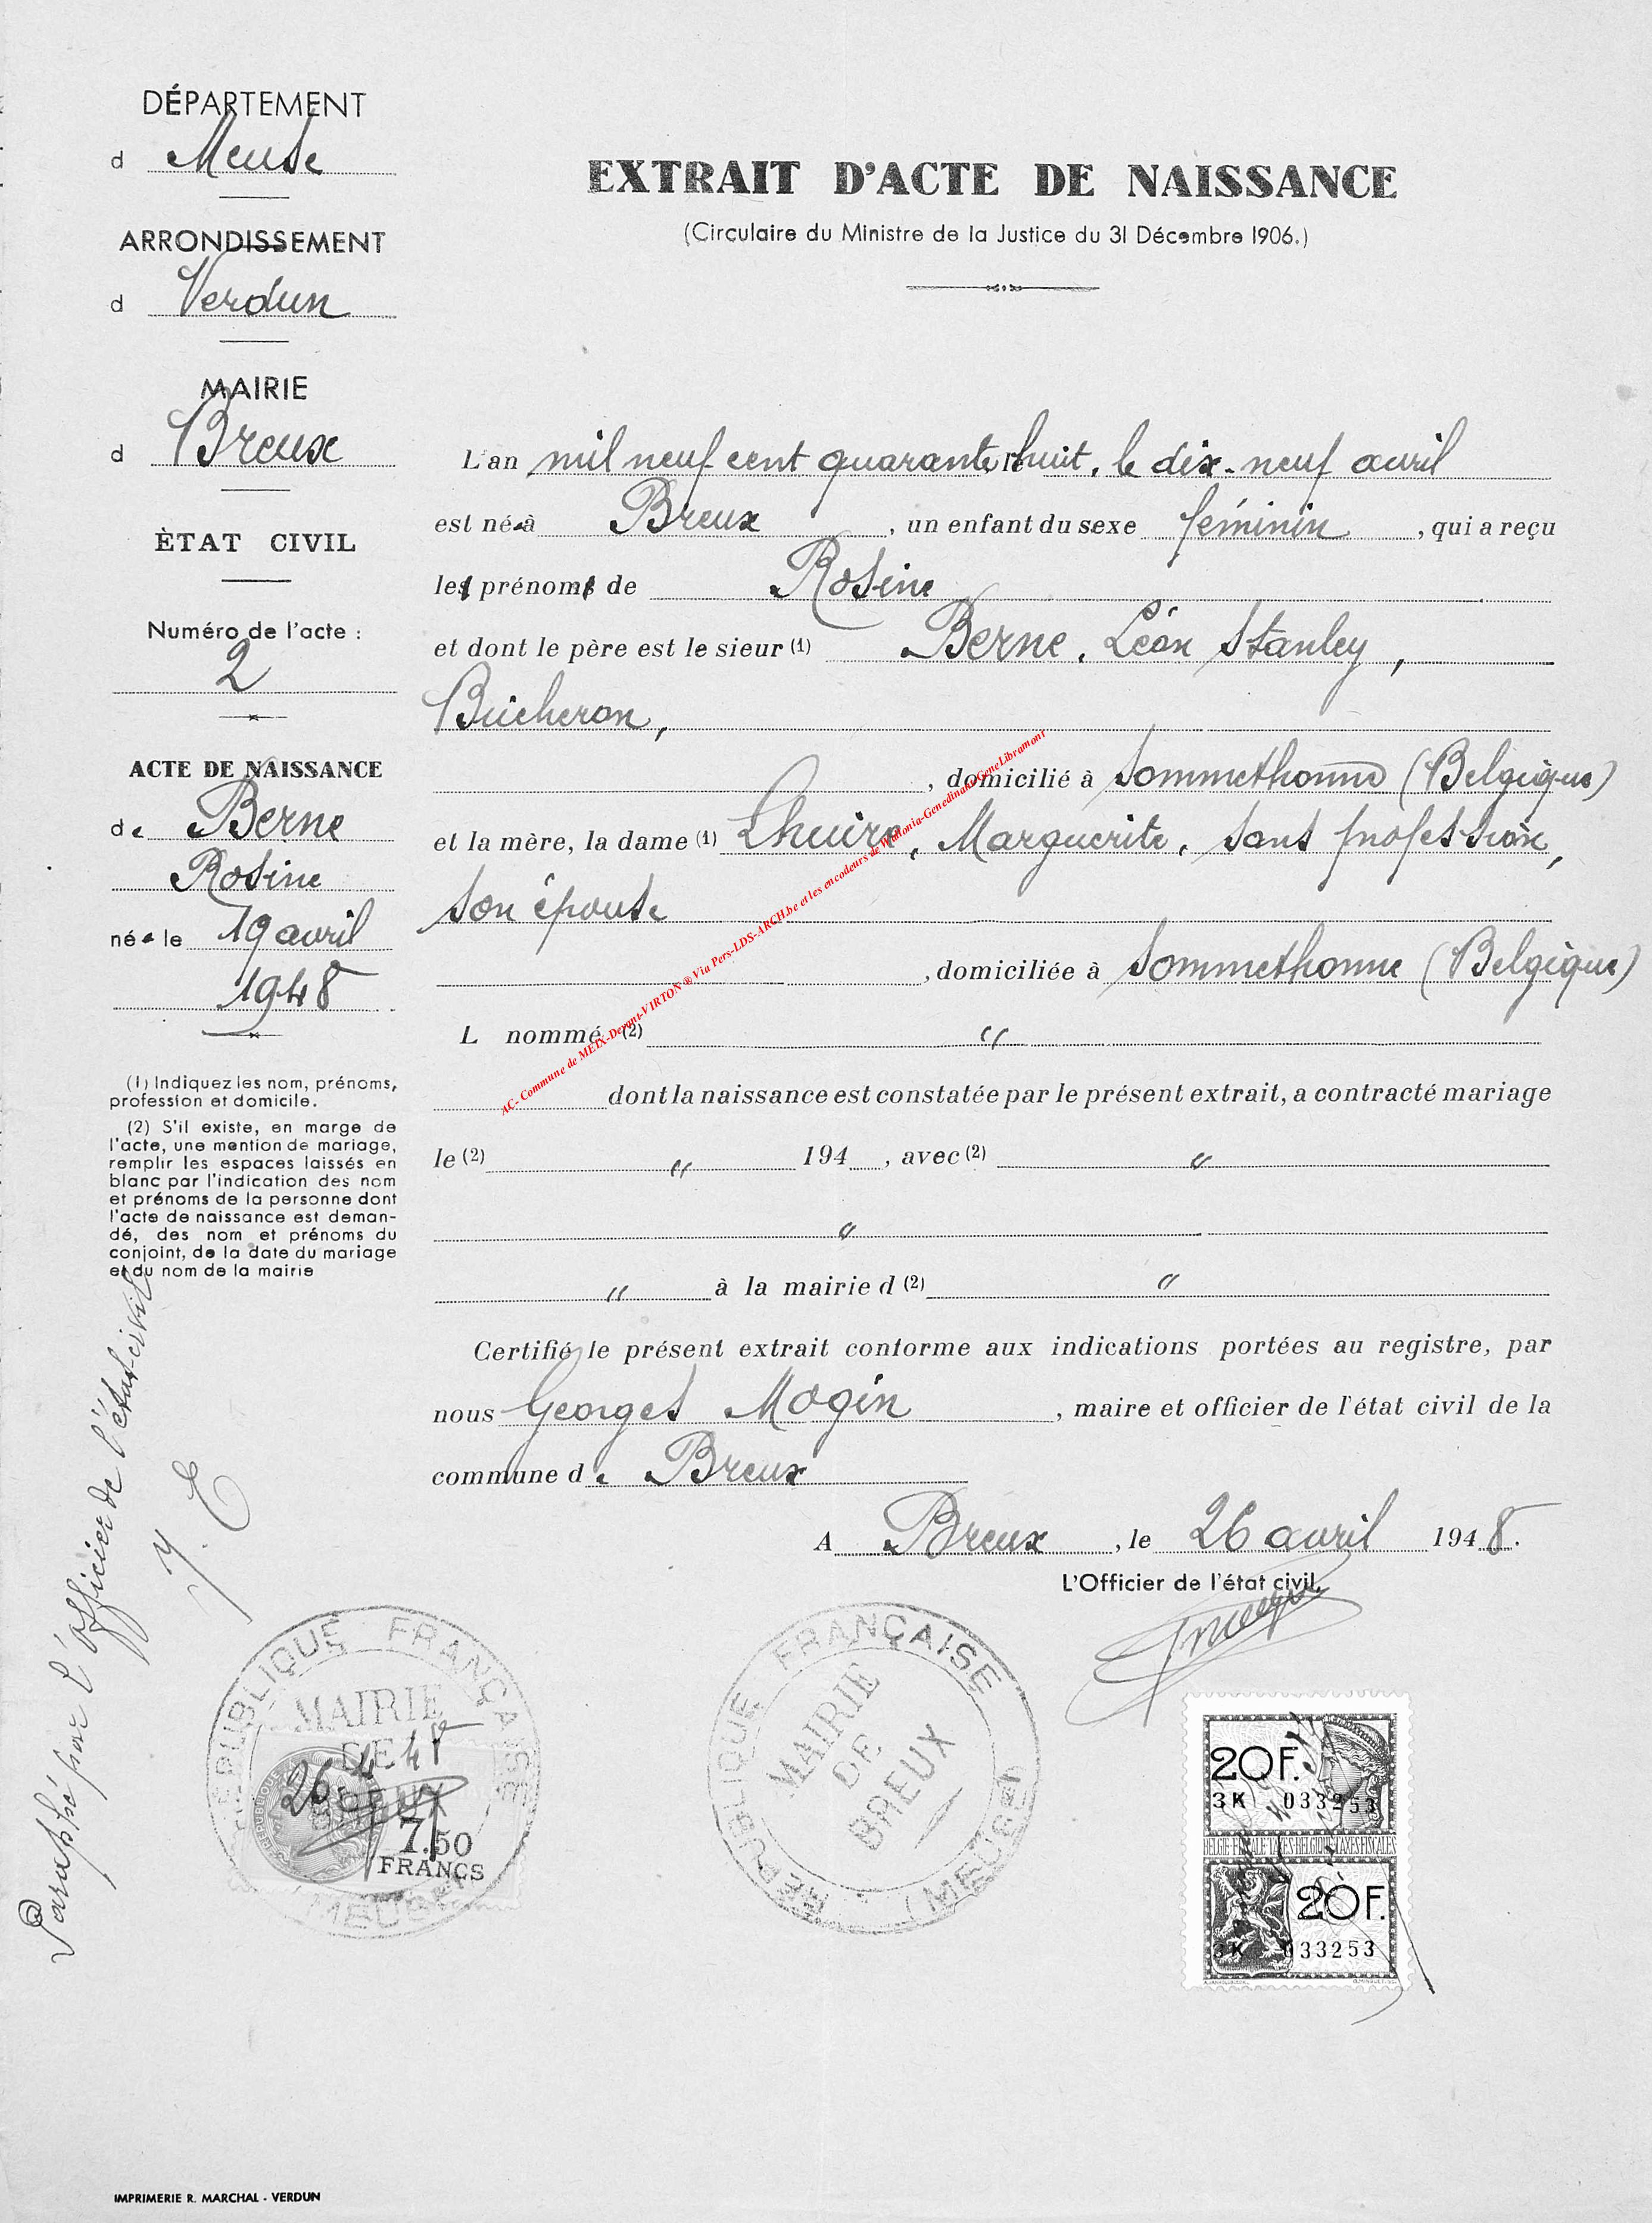 DÉPARTEMENT
d Meuse
ARRONDISSEMENT
d Verdun
MAIRIE
d Breux
ÈTAT CIVIL
Numéro de l'acte :
2
ACTE DE NAISSANCE
de Berne
Rosine
née le 19 avril
1948
(1) Indiquez les nom, prénoms,
profession et domicile.
(2) S'il existe, en marge de
l'acte, une mention de mariage,
remplir les espaces laissés en
blanc par l'indication des nom
et prénoms de la personne dont
l'acte de naissance est deman-
dé, des nom et prénoms du
conjoint, de la date du mariage
et du nom de la mairie
Paraphé par l'officier de l'état-civil
EXTRAIT D'ACTE DE NAISSANCE
(Circulaire du Ministre de la Justice du 31 Décembre 1906.)
L'an mil neuf cent quarante huit, le dix-neuf avril
est née à Breux, un enfant du sexe féminin, qui a reçu
le prénom de Rosine
et dont le père est le sieur (1) Berne, Léon Stanley,
Bûcheron,
, domicilié à Sommethonne (Belgique)
et la mère, la dame (1) Lhuire, Marguerite, sans profession,
son épouse
, domiciliée à Sommethonne (Belgique)
L nommé (2) "
dont la naissance est constatée par le présent extrait, a contracté mariage
le (2) " 194 , avec (2) "
"
" à la mairie d (2) "
Certifié le présent extrait conforme aux indications portées au registre, par
nous Georges Mogin, maire et officier de l'état civil de la
commune de Breux
A Breux, le 26 avril 1948.
L'Officier de l'état civil,
AC- Commune de MEIX-Devant-VIRTON ® Via Pers-LDS-ARCH.be et les encodeurs de Wallonia-Genedinant-GeneLibramont
RÉPUBLIQUE FRANÇAISE
MAIRIE
DE
BREUX
(MEUSE)
26-4-48
7.50
FRANCS
RÉPUBLIQUE FRANÇAISE
MAIRIE
DE
BREUX
(MEUSE)
20F.
3K 033253
20F.
3K 033253
IMPRIMERIE R. MARCHAL - VERDUN